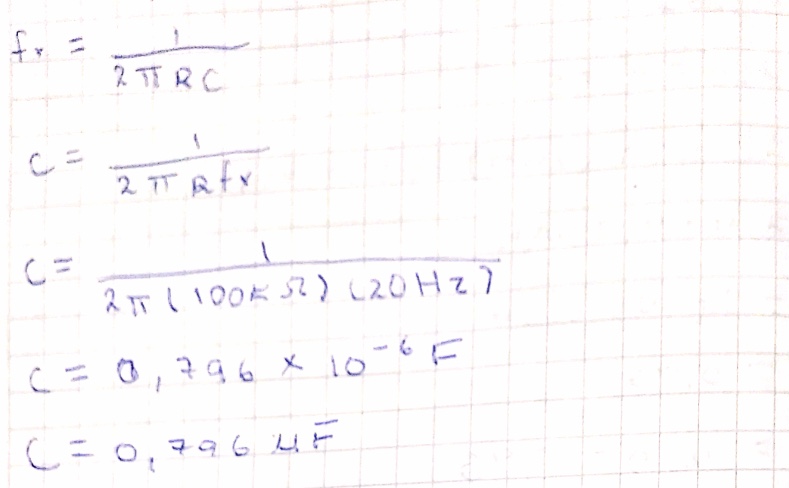 fr = 1 / 2πRC
C = 1 / 2πRfr
C = 1 / 2π(100kΩ)(20Hz)
C = 0,796 × 10^-6 F
C = 0,796 μF